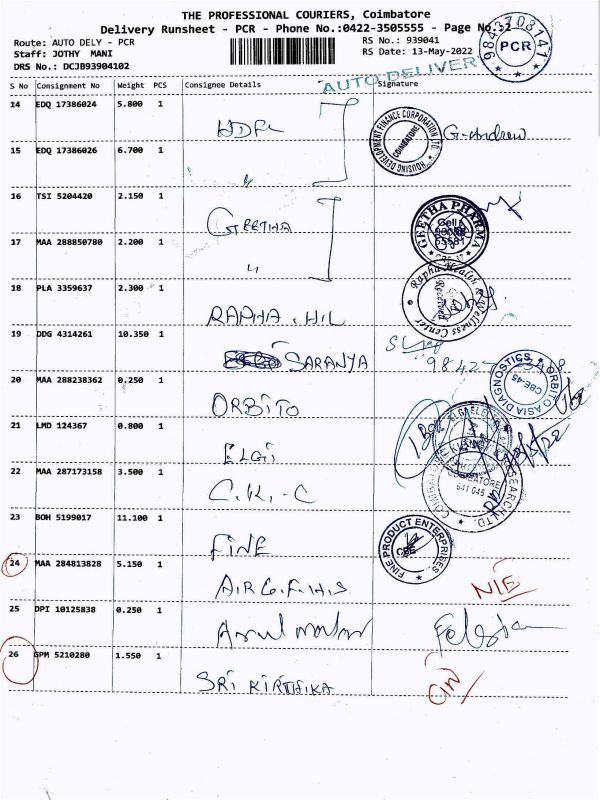 THE PROFESSIONAL COURIERS, Coimbatore
Delivery Runsheet - PCR - Phone No.:0422-3505555 - Page No.
Route: AUTO DELY - PCR
RS No.: 939041
Staff: JOTHY MANI
RS Date: 13-May-2022
DRS No.: DCJB93904102
PCR
AUTO DELIVER
S No Consignment No Weight PCS Consignee Details Signature
14 EDQ 17386024 5.800 1
HDFC
HOUSING DEVELOPMENT FINANCE CORPORATION LTD. COIMBATORE
G. Andrew
15 EDQ 17386026 6.700 1
"
16 TSI 5204420 2.150 1
GEETHA
GEETHA PHARMA
17 MAA 288850780 2.200 1
"
18 PLA 3359637 2.300 1
RAPHA. HIL
Rapha Health & Wellness Center
Received
19 DDG 4314261 10.350 1
SARANYA
20 MAA 288238362 0.250 1
ORBITO
ORBITO ASIA DIAGNOSTICS CBE-45
21 LMD 124367 0.800 1
ELGi
22 MAA 287173158 3.500 1
C.K.-C
COIMBATORE
641 045
23 BOH 5199017 11.100 1
FINE
FINE PRODUCT ENTERPRISES
CBE
24 MAA 284813828 5.150 1
25 DPI 10125838 0.250 1
26 GPM 5210280 1.550 1
SRI KIRTHIKA